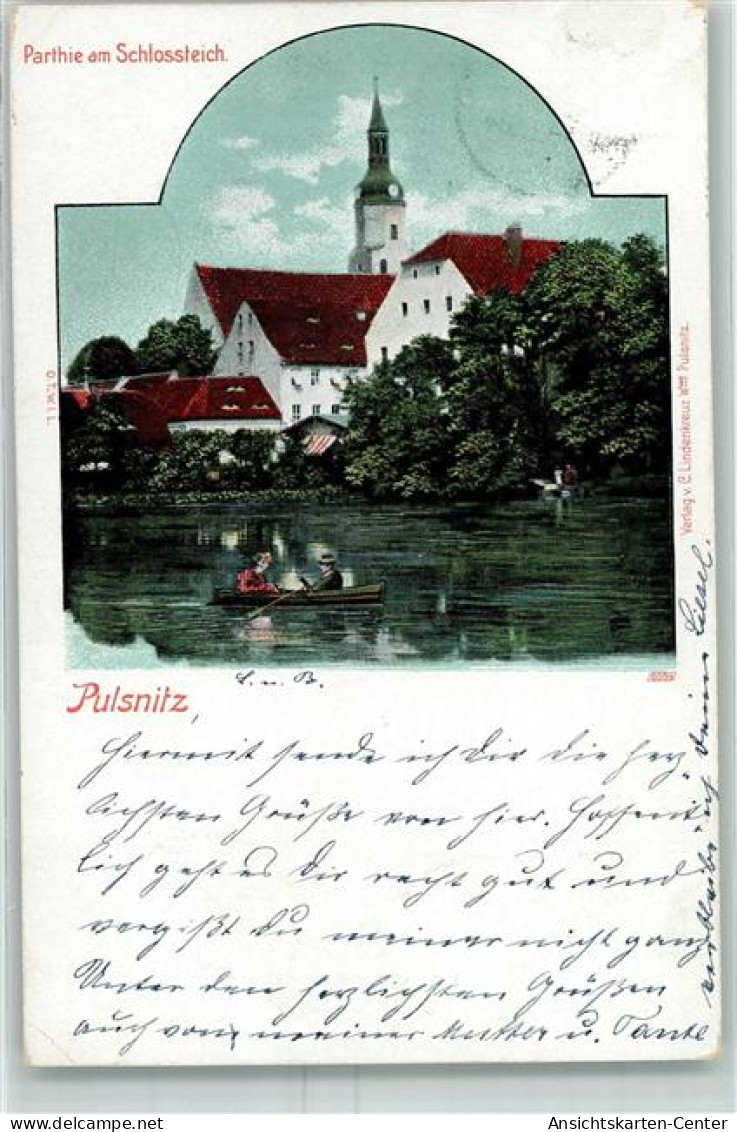 Parthie am Schlossteich.
O.T.W.I L.
Verlag v. C. Lindenkreuz Wwe Pulsnitz.
Pulsnitz,
S. u. B.
Hiermit sende ich Dir die herz„
lichsten Grüße von hier. Hoffent„
lich geht es Dir recht gut und
vergißt Du meiner nicht ganz
Unter den herzlichsten Grüßen
auch von meiner Mutter u. Tante
verbleibe ich Deine Liesel.
delcampe.net
Ansichtskarten-Center